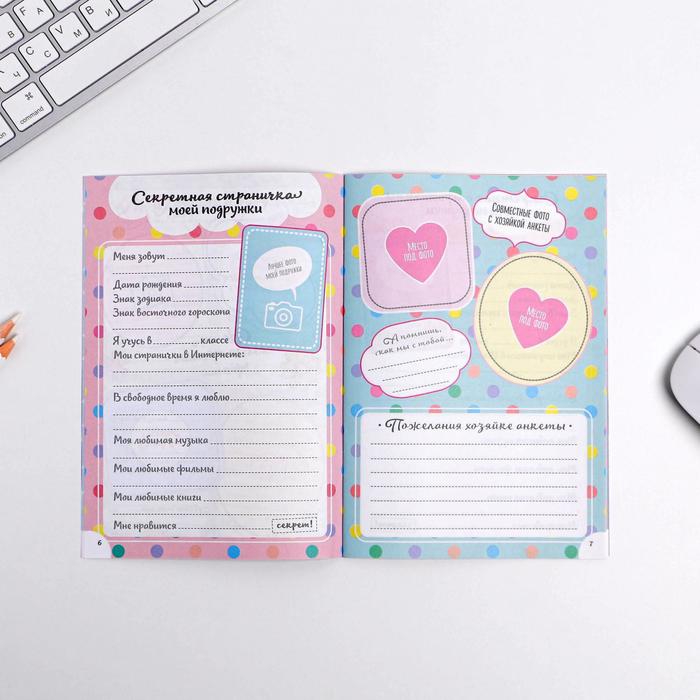 command
⌘
Секретная страничка
моей подружки
Меня зовут
Лучшее фото
моей подружки
Дата рождения
Знак зодиака
Знак восточного гороскопа
Я учусь в классе
Мои странички в Интернете:
В свободное время я люблю
Моя любимая музыка
Мои любимые фильмы
Мои любимые книги
Мне нравится секрет!
6
Совместные фото
с хозяйкой анкеты
Место
под фото
Место
под фото
А помнишь,
как мы с тобой...
• Пожелания хозяйке анкеты •
7